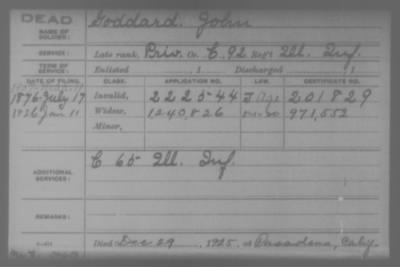 DEAD
NAME OF SOLDIER:
Goddard John
SERVICE:
Late rank, Priv. Co. C, 92 Reg't Ill. Inf.
TERM OF SERVICE:
Enlisted , 1 Discharged , 1
DATE OF FILING. CLASS. APPLICATION NO. LAW. CERTIFICATE NO.
1876 July 17 Invalid, 222544 J Age 201829
1926 Jan 11 Widow, 1240,826 971,552
Minor,
ADDITIONAL SERVICES:
C 65 Ill. Inf.
REMARKS:
Died Dec 29, 1925, at Pasadena, Caly.